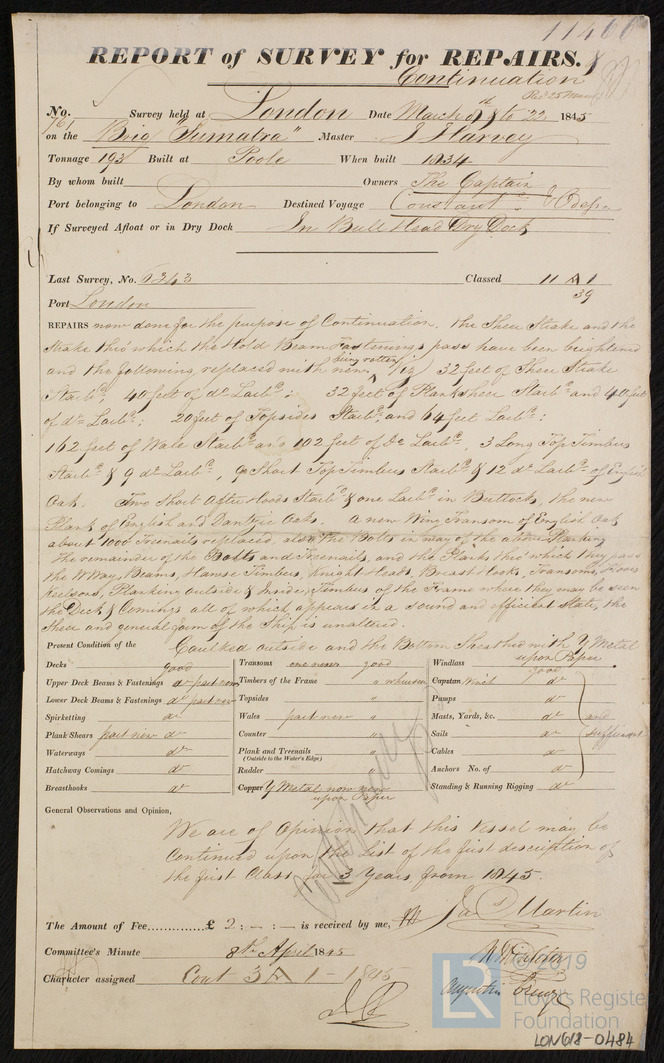 11406
REPORT of SURVEY for REPAIRS.
Continuation
No. 761 Survey held at London Date March 8th to 22 1845
on the Brig "Sumatra" Master J Harvey
Tonnage 193 Built at Poole When built 1834
By whom built Owners The Captain
Port belonging to London Destined Voyage Constant. & Odessa
If Surveyed Afloat or in Dry Dock In Bull Head Dry Dock
Last Survey, No. 6343 Classed 11 A 1
39
Port London
REPAIRS now done for the purpose of Continuation. the Sheer Strake and the
Strake thro' which the Hold Beam Fastenings pass have been brightened
and the following replaced with new (being rotten) viz 32 feet of Sheer Strake
Starbd. 40 feet of do Larbd.; 32 feet of Planksheer Starbd. and 40 feet
of do Larbd.; 20 feet of Topsides Starbd. and 64 feet Larbd.;
162 feet of Wale Starbd. and 102 feet of do Larbd., 3 Long Top Timbers
Starbd. & 9 do Larbd., 9 Short Top Timbers Starbd. & 12 do Larbd. of English
Oak. Two Short After Hoods Starbd. & one Larbd. in Buttock, the new
Plank of English and Dantzic Oak. A new Wing Transom of English Oak
about 1000 Treenails replaced, also the Bolts in way of the above Planking
The remainder of the Bolts and Treenails, and the Planks thro' which they pass
the W Way, Beams, Hawse Timbers, Knight Heads, Breast Hooks, Transoms, Floors
Keelsons, Planking outside & Inside, Timbers of the Frame where they may be seen
the Deck & Comings all of which appears in a sound and efficient state, the
Sheer and general form of the Ship is unaltered.
Present Condition of the Caulked outside and the Bottom Sheathed with Y Metal
upon Paper
Decks good
Upper Deck Beams & Fastenings do part new
Lower Deck Beams & Fastenings do part new
Spirketting do
Plank Shears part new do
Waterways do
Hatchway Comings do
Breasthooks do
Transoms one new good
Timbers of the Frame " where seen
Topsides "
Wales part new "
Counter "
Plank and Treenails "
(Outside to the Water's Edge)
Rudder "
Copper Y Metal now new
upon Paper
Windlass good
Capstan Winch do
Pumps do
Masts, Yards, &c. do and
Sails do sufficient
Cables do
Anchors No. of do
Standing & Running Rigging do
General Observations and Opinion,
We are of Opinion that this Vessel may be
Continued upon the List of the first description of
the first Class for 3 Years from 1845.
The Amount of Fee £ 2 : - : - is received by me, Jas Martin
Committee's Minute 8th April 1845
Character assigned Cont 3 A 1 - 1845
© 2019
Lloyd's Register
Foundation
LR
LON618-0484